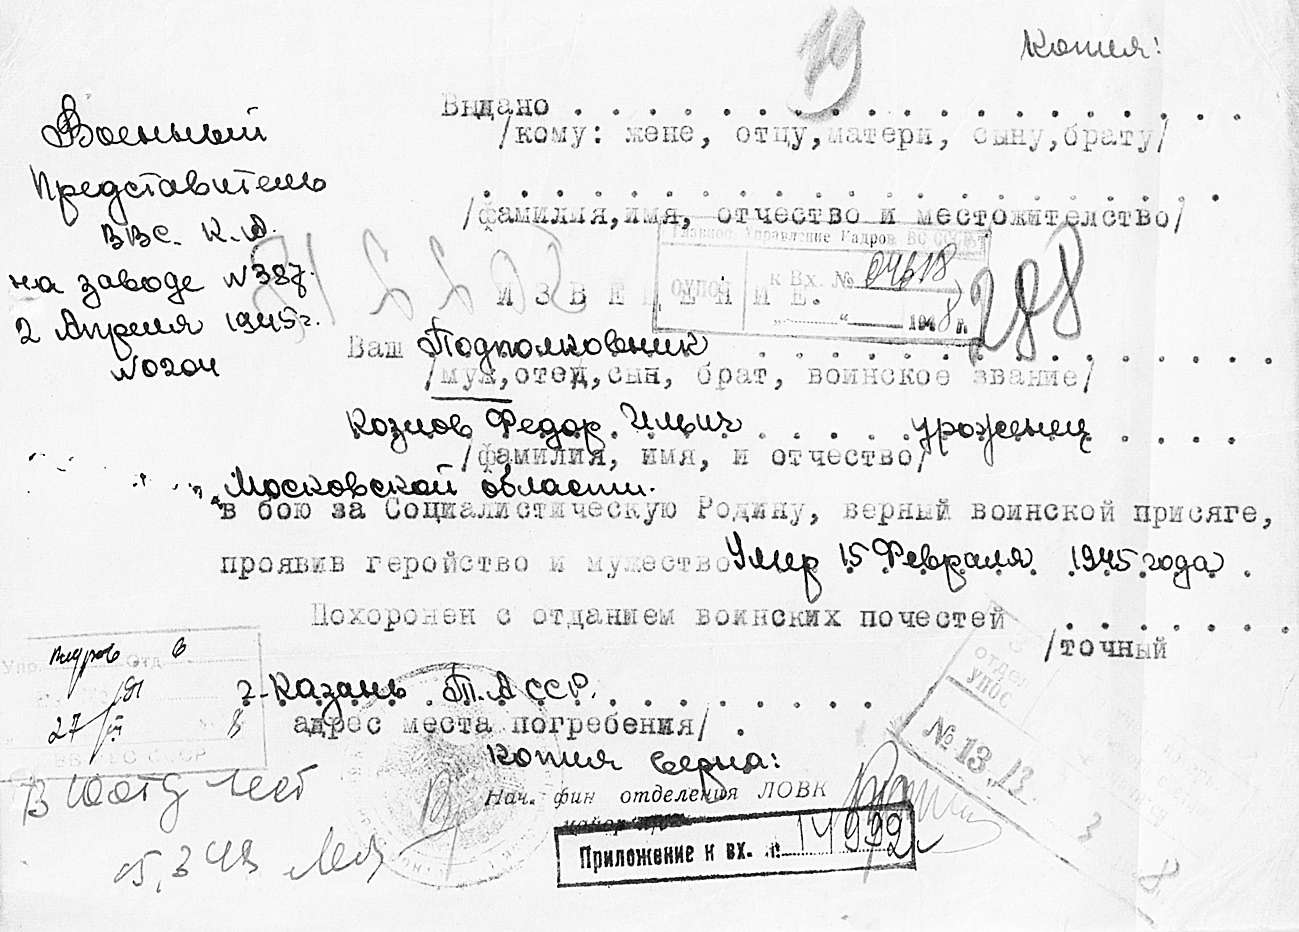 Копия:
Военный
Представитель
ВВС. К.А.
на заводе №387.
2 Апреля 1945г.
№0204
Выдано . . . . . . . . . . . . . . . . . . .
/кому: жене, отцу,матери, сыну,брату/
. . . . . . . . . . . . . . . . . . . . .
/фамилия,имя, отчество и местожителство/
Главное Управление Кадров ВС СССР
к Вх. № 04618
„ “ 1948 г.
288
И З В Е Щ Е Н И Е.
Ваш Подполковник . . . . . . . . . . . . . . .
/муж,отец,сын, брат, воинское звание/
Козлов Федор Ильич . . . . . уроженец . . . .
/фамилия, имя, и отчество/
Московской области.
в бою за Социалистическую Родину, верный воинской присяге,
проявив геройство и мужество Умер 15 Февраля 1945 года .
Похоронен с отданием воинских почестей . . . . . . .
/точный
г. Казань Т.АССР. . . . . . . . .
адрес места погребения/ .
Копия верна:
Нач. фин отделения ЛОВК
майор
Приложение к вх. №: 14992
отдел
УПОС
№ 13
Отд 6
27
8